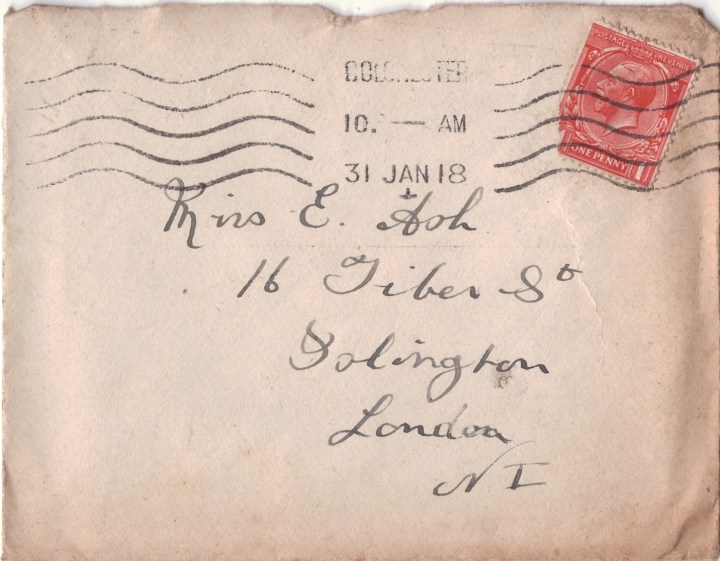 COLCHESTER
10. — AM
31 JAN 18
POSTAGE REVENUE
ONE PENNY 1
Miss E. Ash
16 Tiber St
Islington
London
N I